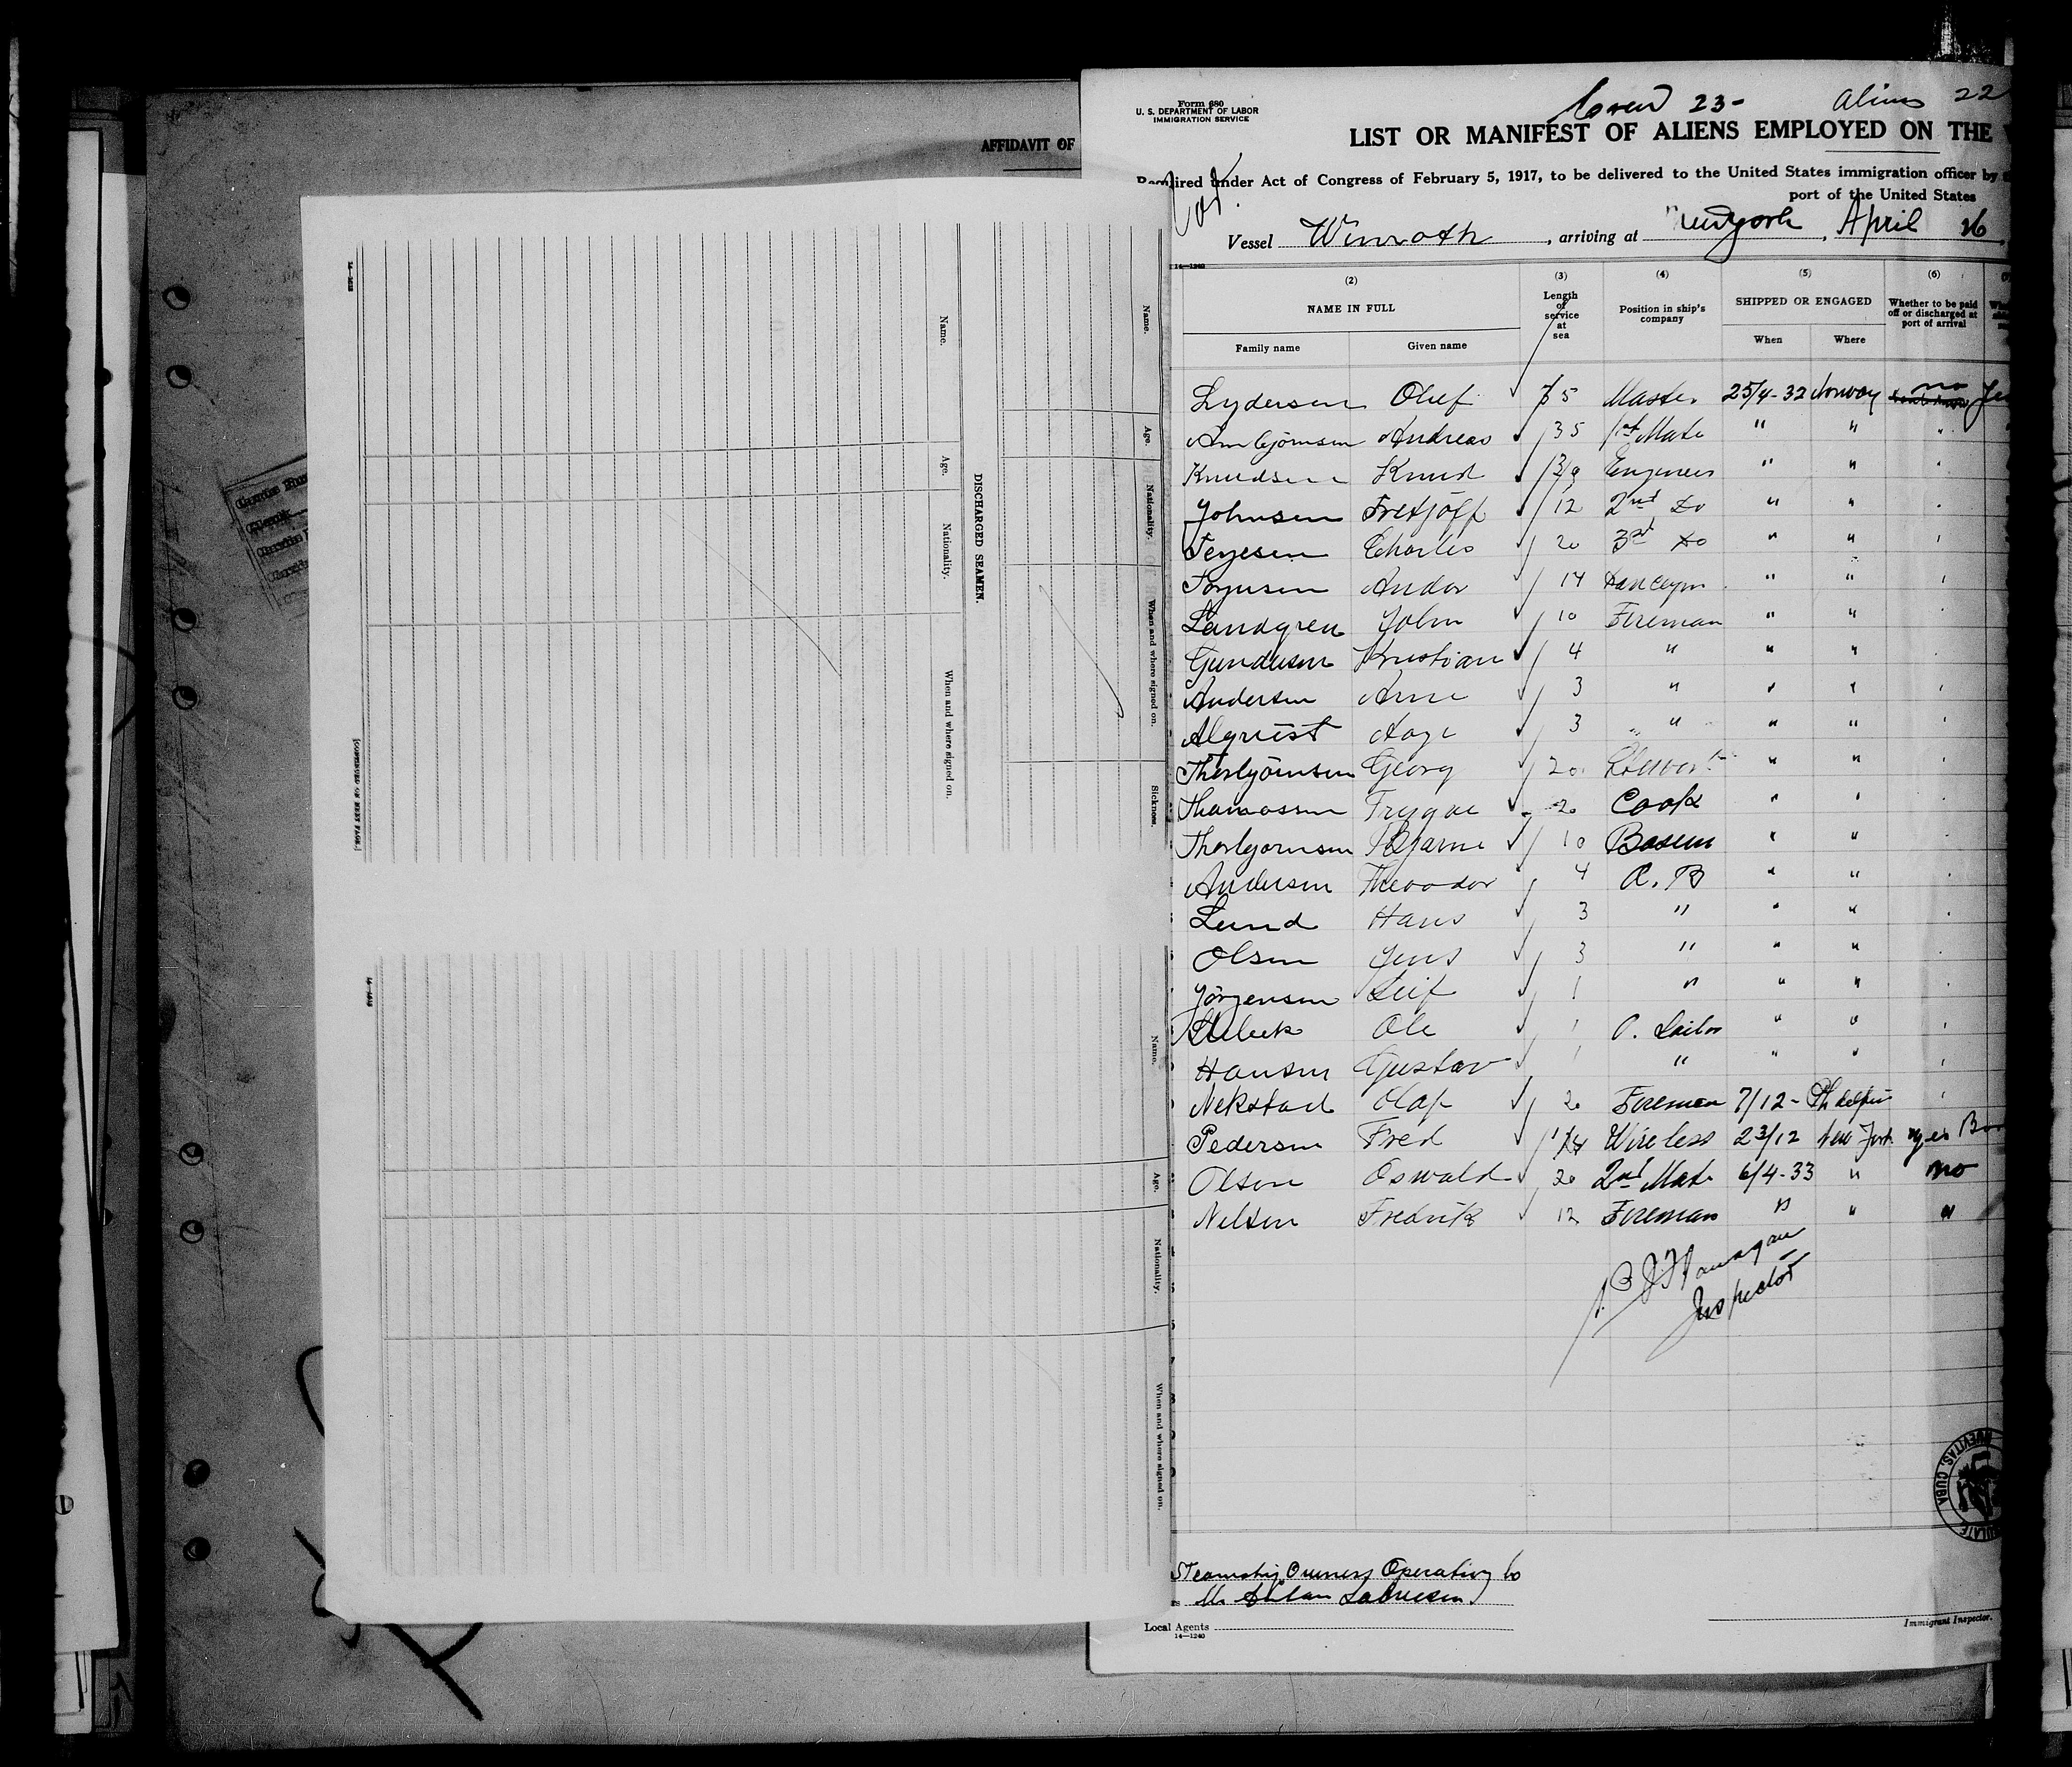 AFFIDAVIT OF
14—1240
[CONTINUED ON NEXT PAGE.]
Name.
Age.
Nationality.
When and where signed on.
DISCHARGED SEAMEN.
Name.
Age.
Nationality.
When and where signed on.
Sickness.
Name.
Age.
Nationality.
When and where signed on.
Form 680
U. S. DEPARTMENT OF LABOR
IMMIGRATION SERVICE
Crew 23- Aliens 22
LIST OR MANIFEST OF ALIENS EMPLOYED ON THE
Required under Act of Congress of February 5, 1917, to be delivered to the United States immigration officer by
port of the United States
Vessel Winroth, arriving at New York, April 26
14—1240
(2) (3) (4) (5) (6)
NAME IN FULL Length of service at sea Position in ship's company SHIPPED OR ENGAGED Whether to be paid off or discharged at port of arrival
Family name Given name When Where
Lydersen Oluf 35 Master 25/4-32 Norway no
Arnbjörnsen Andreas 35 1st Mate " "
Knudsen Knud Engineer " "
Johnsen Fretjöff 12 2nd Do " "
Terjesen Charles 20 3rd Do " "
Andor 14 " "
Landgren John 10 Fireman " "
Gundersen Kristian 4 " " "
Andersen Arne 3 " " "
Alqvist Aage 3 " " "
Thorbjörnsen Georg 20 " "
Thomassen Trygve 20 Cook " "
Thorbjornsen Bjarne 10 Bosun " "
Andersen Theodor 4 A. B " "
Lund Hans 3 " " "
Olsen Jens 3 " " "
Jörgensen Leif 1 " " "
Ole 1 O. Sailor " "
Hansen Gustav 1 " " "
Nekstad Olaf 20 Fireman 7/12-
Pedersen Fred Wireless 23/12 New York yes
Olsen Oswald 20 2nd Mate 6/4-33 " no
Nelsen Fredrik 12 Fireman " " "
Flanagan
Inspector
NUEVITAS, CUBA
Steamship Owners Operating Co
Local Agents
14—1240
Immigrant Inspector.